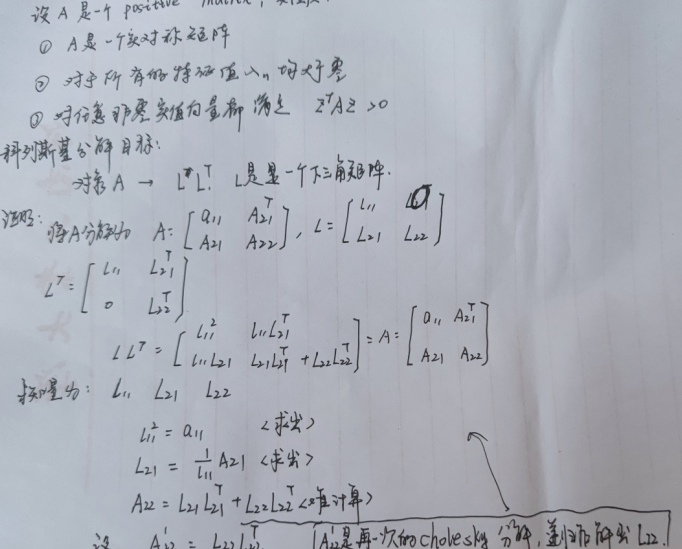 设 A 是一个 positive matrix,
① A 是一个实对称矩阵
② 对于所有的特征值 λn 均大于零
③ 对任意非零实值向量都满足 Z^T A Z > 0
科列斯基分解目标:
对象 A → L L^T. L 是是一个下三角矩阵.
证明: 将A分解为 A = [ a11 A21^T ; A21 A22 ], L = [ L11 0 ; L21 L22 ]
L^T = [ L11 L21^T ; 0 L22^T ]
LL^T = [ L11^2 L11L21^T ; L11L21 L21L21^T + L22L22^T ] = A = [ a11 A21^T ; A21 A22 ]
量为: L11 L21 L22
L11^2 = a11 <求出>
L21 = 1/L11 A21 <求出>
A22 = L21L21^T + L22L22^T <难计算>
设 A22' = L22L22^T [A22'是再一次的cholesky 分解, 递归而解出 L22.